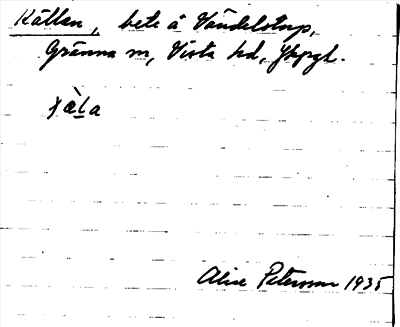 Källan, bete å Vändelstorp,
Gränna sn, Vista hd, Jkpgl.
xæ̀la
Alice Petersson 1935